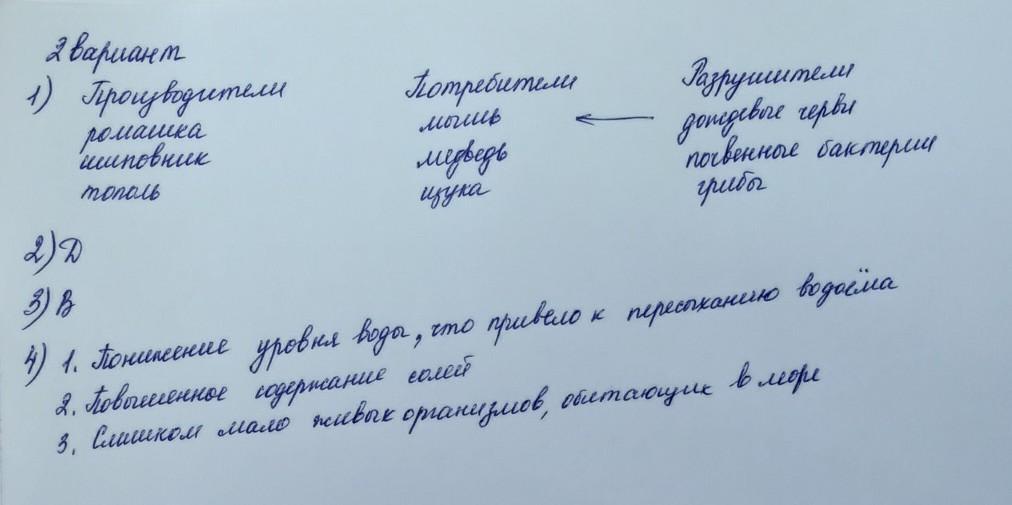 2 вариант
1) Производители Потребители Разрушители
ромашка мышь ← дождевые черви
шиповник медведь почвенные бактерии
тополь щука грибы
2) Д
3) В
4) 1. Понижение уровня воды, что привело к пересыханию водоёма
2. Повышенное содержание солей
3. Слишком мало живых организмов, обитающих в море